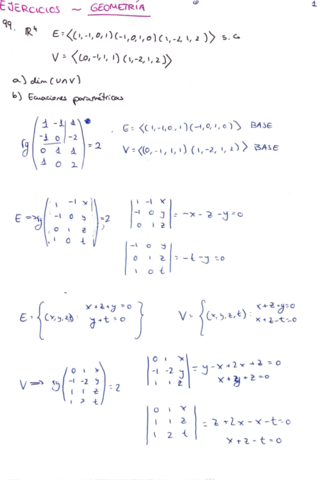 EJERCICIOS ~ GEOMETRÍA
1
99. ℝ⁴ E=⟨(1,-1,0,1)(-1,0,1,0)(1,-2,1,2)⟩ s.g
V=⟨(0,-1,1,1)(1,-2,1,2)⟩
a) dim(U∩V)
b) Ecuaciones paramétricas
rg
1 -1 1
-1 0 -2
0 1 1
1 0 2
=2
E=⟨(1,-1,0,1)(-1,0,1,0)⟩ BASE
V=⟨(0,-1,1,1)(1,-2,1,2)⟩ BASE
E ⟹ rg
1 -1 x
-1 0 y
0 1 z
1 0 t
=2
1 -1 x
-1 0 y
0 1 z
=-x-z-y=0
-1 0 y
0 1 z
1 0 t
=-t-y=0
E={(x,y,z,t): x+z+y=0
y+t=0}
V={(x,y,z,t): x+z+y=0
x+z-t=0}
V ⟹ rg
0 1 x
-1 -2 y
1 1 z
1 2 t
=2
0 1 x
-1 -2 y
1 1 z
=y-x+2x+z=0
x+y+z=0
0 1 x
1 1 z
1 2 t
=z+2x-x-t=0
x+z-t=0